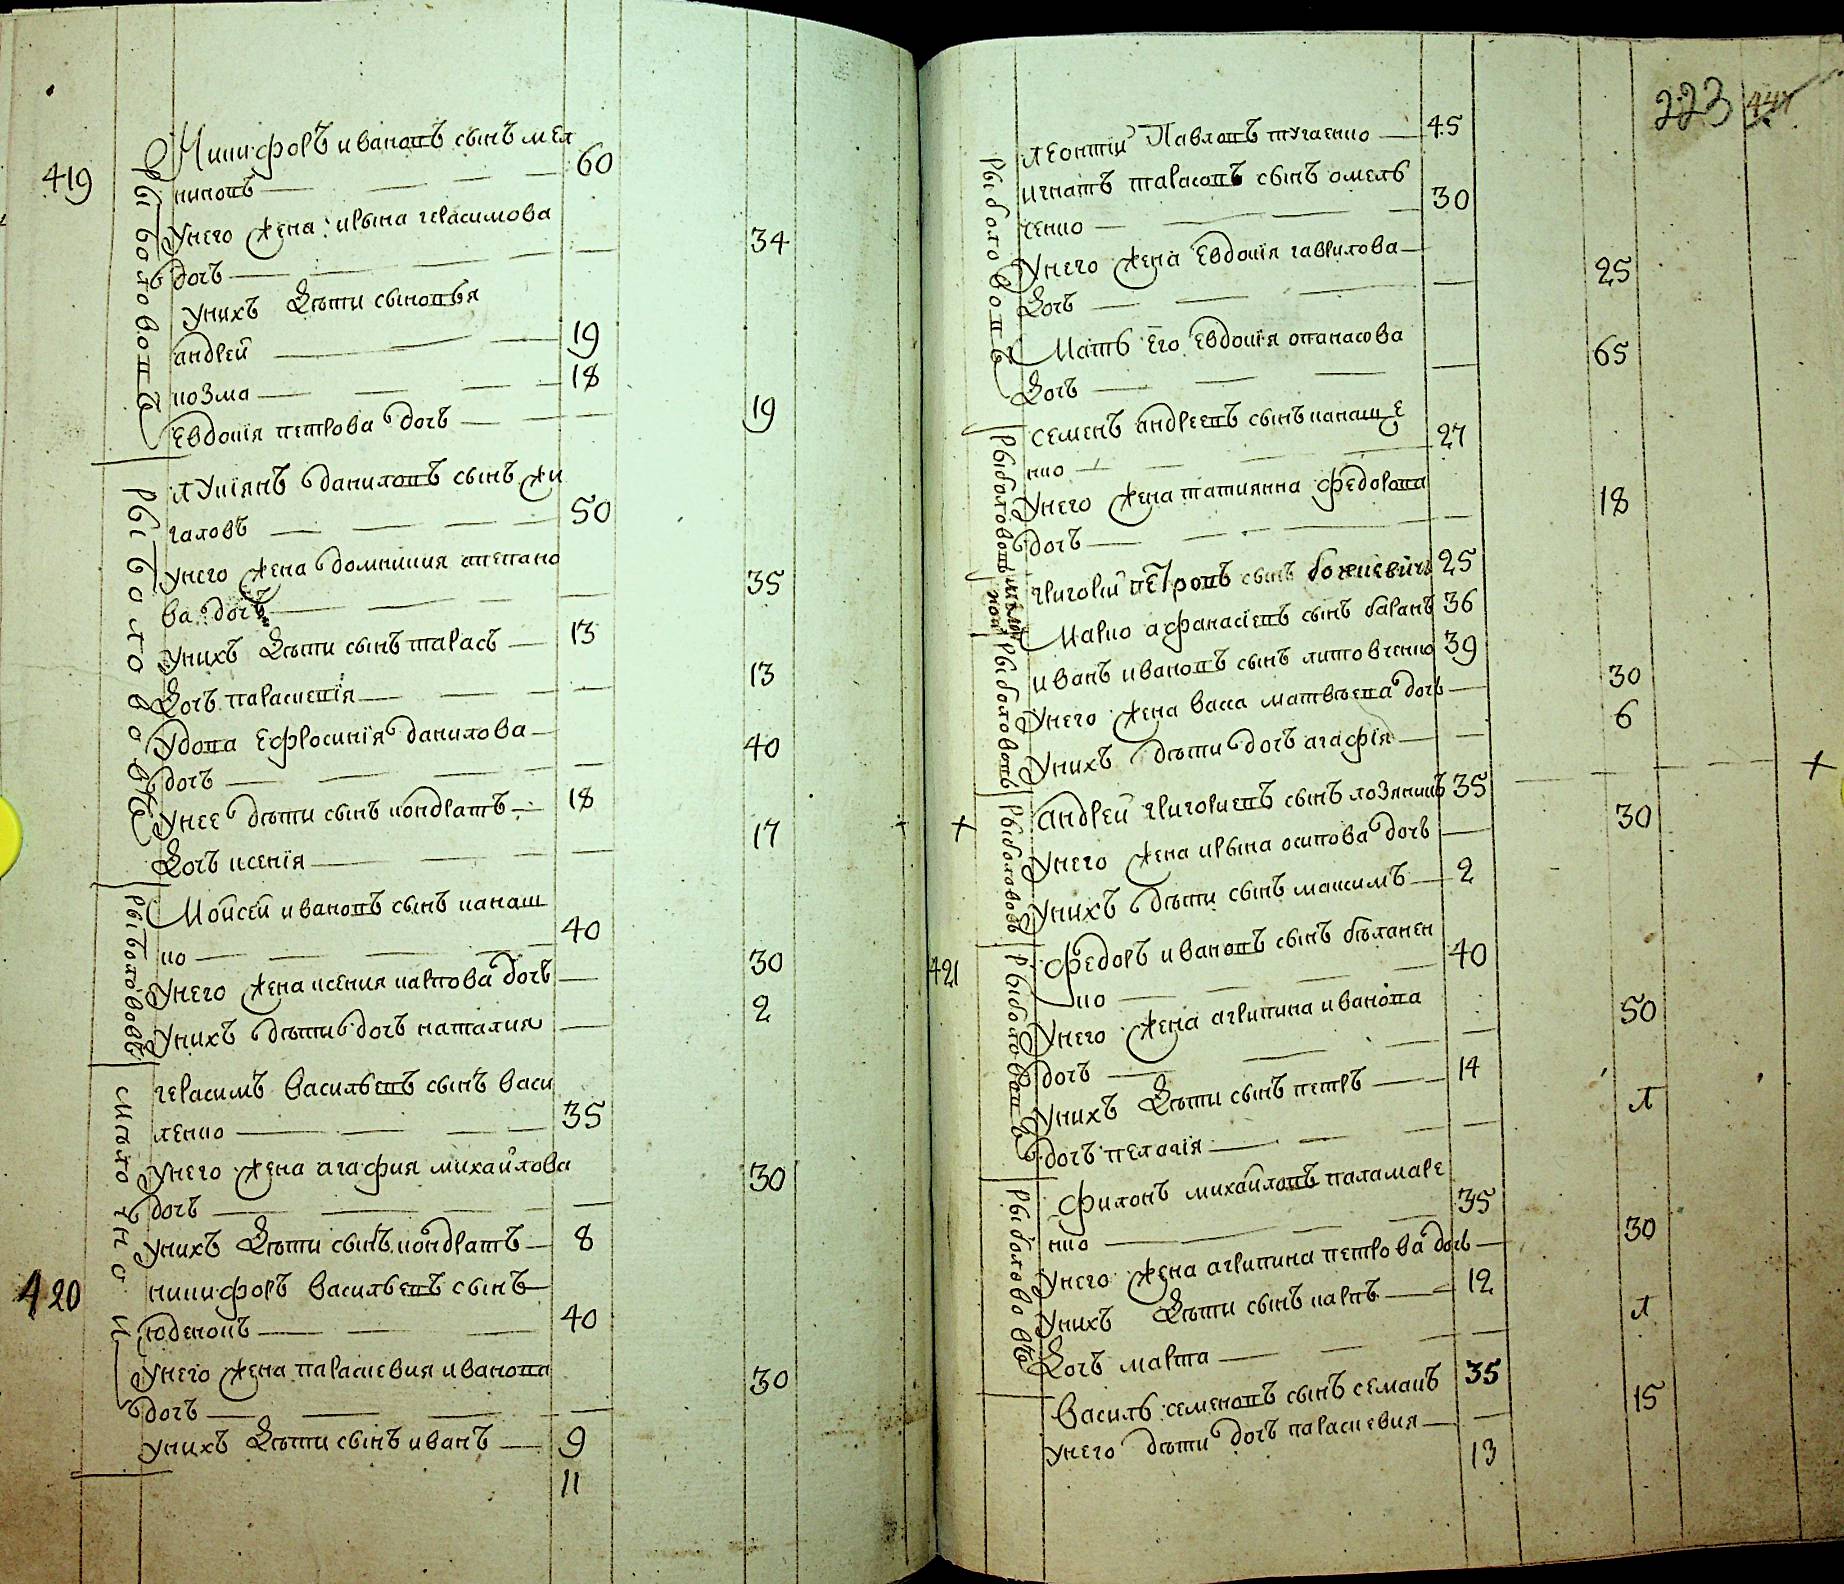 419
рыболововъ
Никифоръ ивановъ сынъ мел
никовъ 60
унего жена ирына герасимова
дочь 34
унихъ дѣти сыновья
андрей 19
козма 18
Евдокія петрова дочь 19
рыболововъ
лукіянъ даниловъ сынъ жи
галовъ 50
унего жена домникия степано
ва дочь 35
унихъ дѣти сынъ тарасъ 13
дочь параскевія 13
удова ефросинія данилова
дочь 40
унее дѣти сынъ кондратъ 18
дочь ксенія 17
рыболововъ
Мойсей ивановъ сынъ канаш
ко 40
унего жена ксения карпова дочь 30
унихъ дѣти дочь наталия 2
герасимъ васильевъ сынъ васи
ленко 35
унего жена агафия михайлова
дочь 30
унихъ дѣти сынъ кондратъ 8
420
никифоръ васильевъ сынъ
юденокъ 40
унего жена параскевия иванова
дочь 30
унихъ дѣти сынъ иванъ 9
11
223
рыболововъ
леонтій Павловъ тугаенко 45
игнатъ тарасовъ сынъ омель
ченко 30
унего жена Евдокія гаврилова
дочь 25
Мать его евдокія опанасова
дочь 65
рыболововъ
семенъ андреевъ сынъ канаще
нко 27
унего жена татиянна федорова
дочь 18
григорій петровъ сынъ божкевичъ 25
Марко афанасіевъ сынъ баранъ 36
рыболововъ
иванъ ивановъ сынъ литовченко 39
унего жена васса матвѣева дочь 30
унихъ дѣти дочь агафія 6
рыболововъ
андрей григориевъ сынъ лозяникъ 35
унего жена ирына осипова дочь 30
унихъ дѣти сынъ максимъ 2
421
рыболовавъ
федоръ ивановъ сынъ бѣланен
ко 40
унего жена агрипина иванова
дочь 50
унихъ дѣти сынъ петръ 14
дочь пелагія л
рыболововъ
филонъ михайловъ паламаре
нко 35
унего жена агрипина петрова дочь 30
унихъ дѣти сынъ карпъ 12
дочь марта л
василь семеновъ сынъ семакъ 35
унего дѣти дочь параскевия 15
13